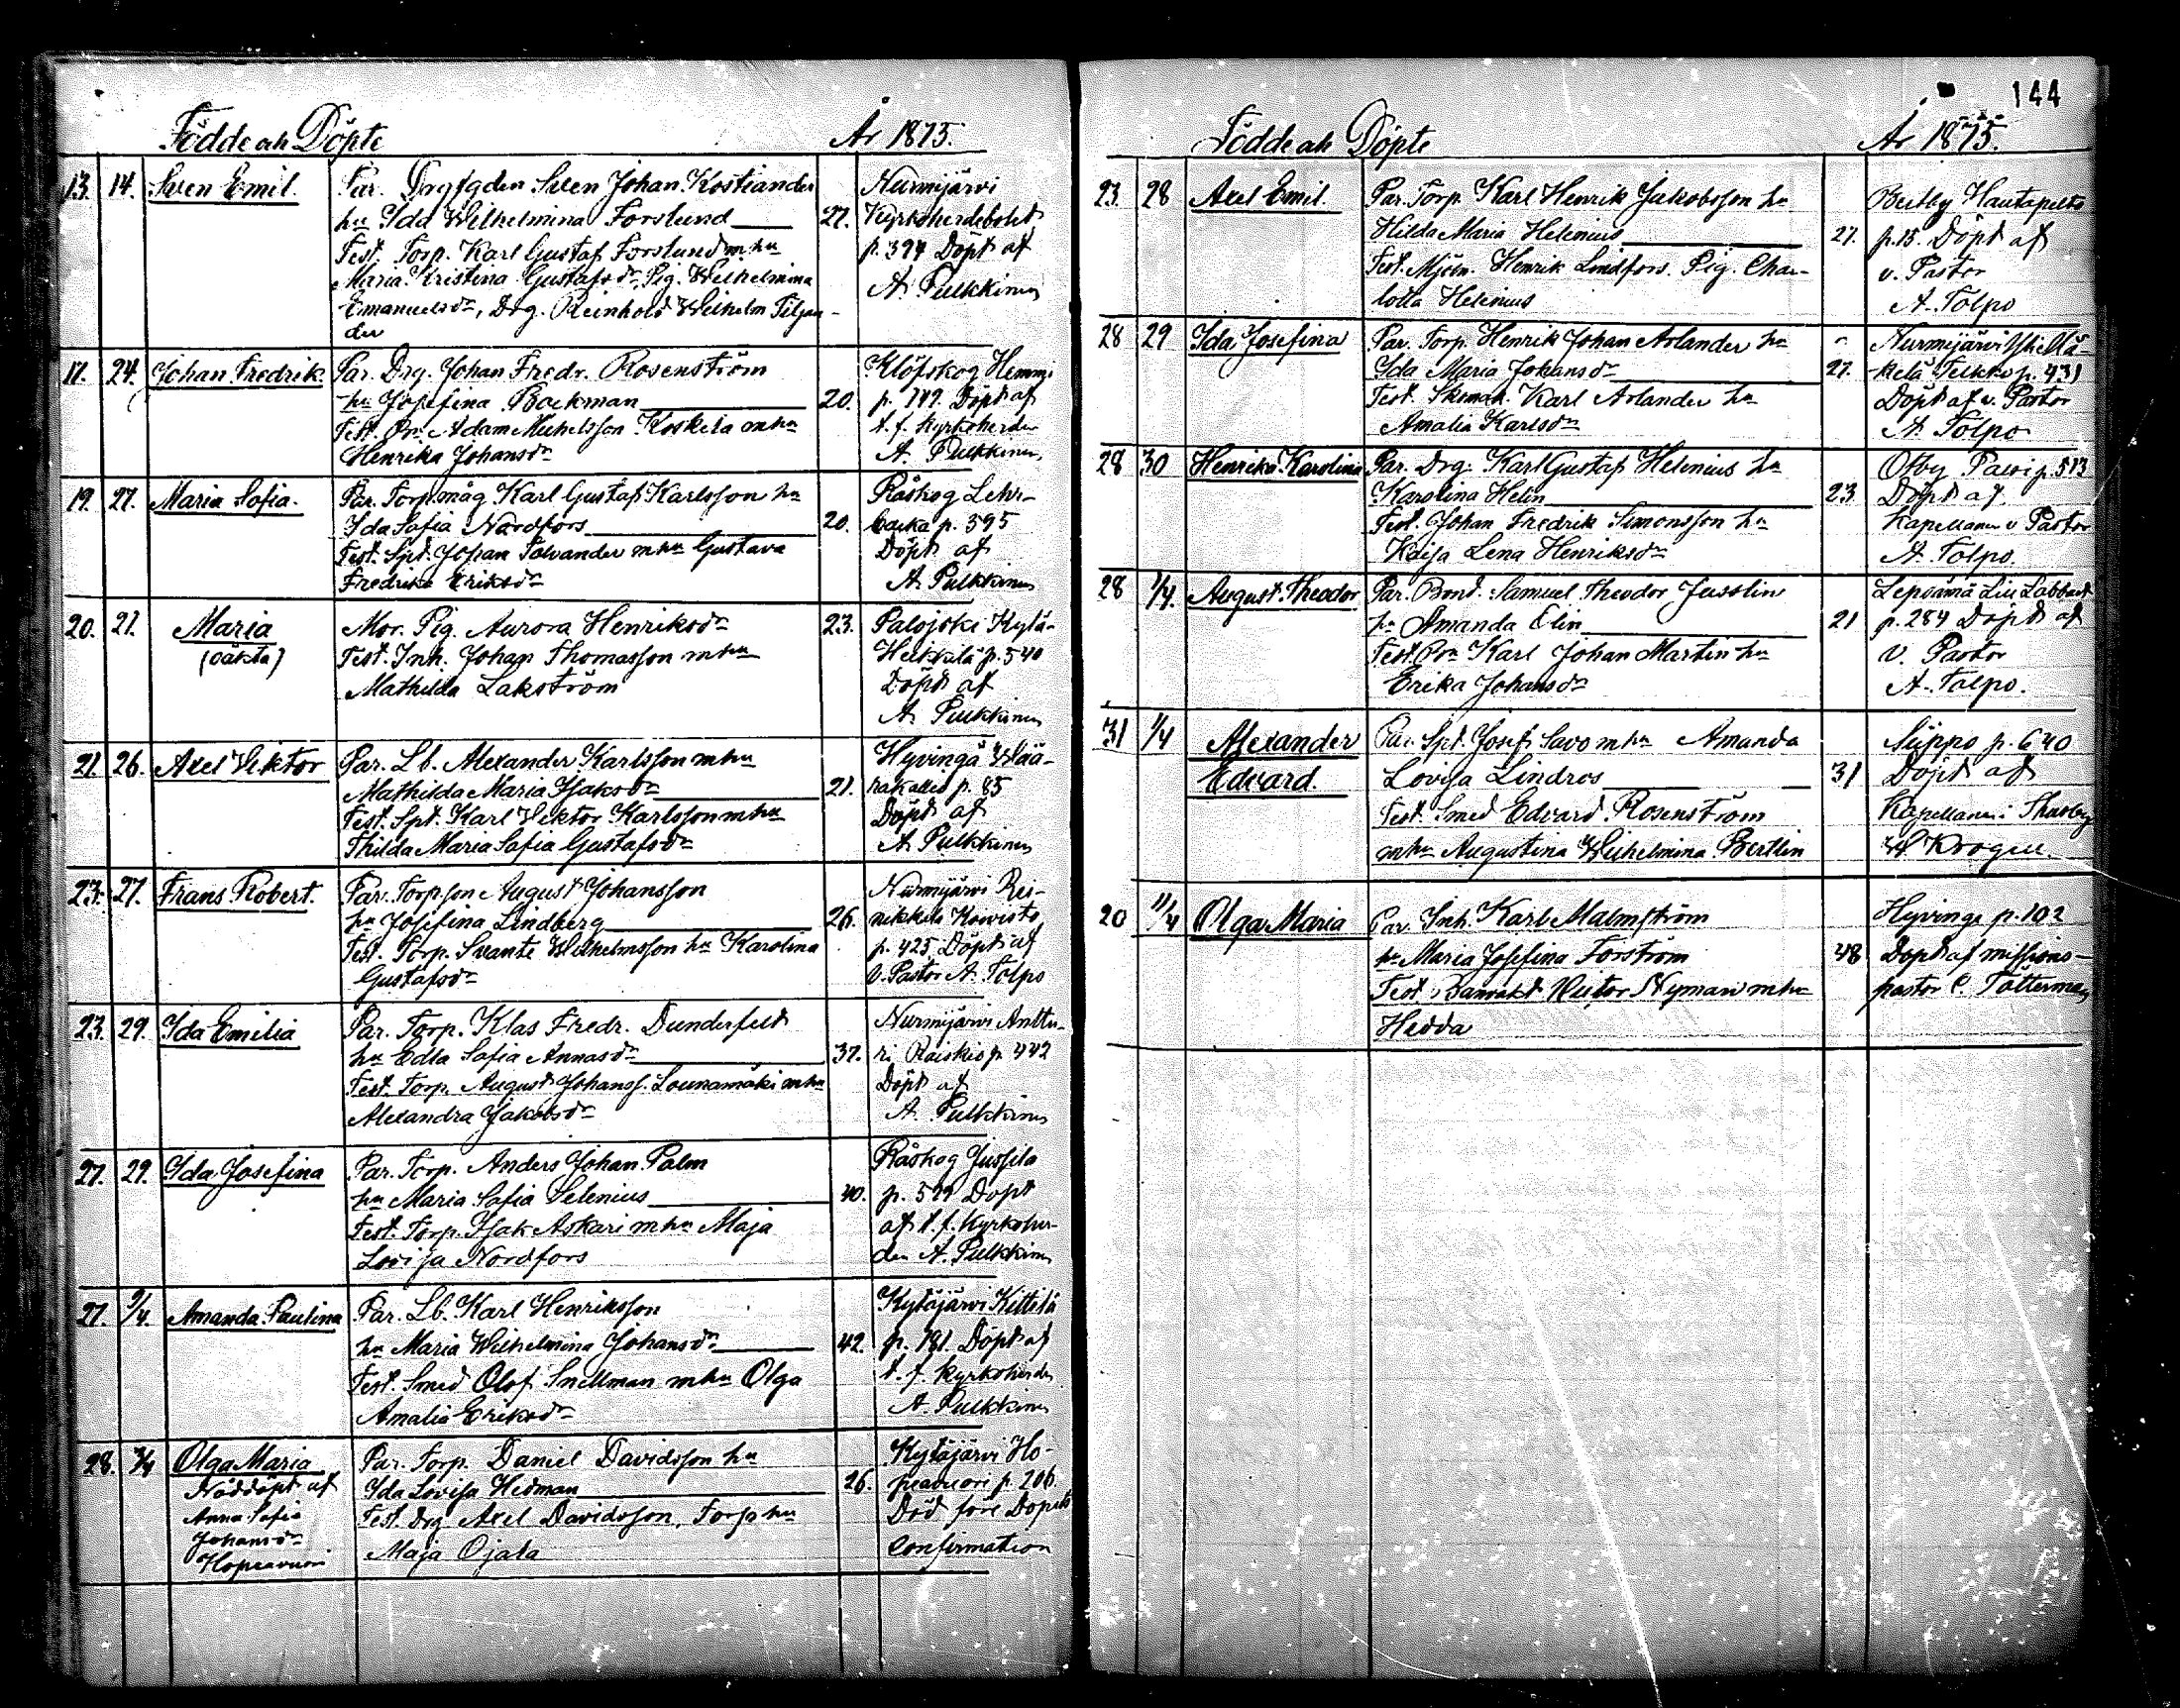 Födde och Döpte År 1875.
13. 14. Sven Emil. Par. Drg Sven Johan Kostiander
hu Ida Wilhelmina Forslund 27.
Test. Torp. Karl Gustaf Forslund m hu
Maria Kristina Gustafsdr Pig. Wilhelmina
Emanuelsdr, Drg. Reinhold Wilhelm Tiljan-
der
Nurmijärvi
Kyrkoherdebohl
p. 394 Döpt af
A. Pulkkinen
17. 24. Johan Fredrik. Par. Drg. Johan Fredr. Rosenström
hu Josefina Backman 20.
Test. Bn Adam Michelsson Koskela m hu
Henrika Johansdr
Klöfskog Hemmi
p. 149. Döpt af
t. f. Kyrkoherden
A. Pulkkinen
19. 27. Maria Sofia. Par. Torp.måg Karl Gustaf Karlsson hu
Ida Sofia Nordfors 20.
Test. Spt. Johan Salvander m hu Gustava
Fredrika Eriksdr
Råskog Leh-
p. 395
Döpt af
A. Pulkkinen
20. 21. Maria Mor. Pig. Aurora Henriksdr 23.
(oäkta) Test. Inh. Johan Thomasson m hu
Mathilda Lakström
Palojoki Kylä-
Heikkilä p. 540
Döpt af
A. Pulkkinen
21. 26. Axel Viktor Par. Lb. Alexander Karlsson m hu
Mathilda Maria Isaksdr 21.
Test. Spt. Karl Viktor Karlsson m hu
Thilda Maria Sofia Gustafsdr
Hyvingä Wää-
rakallio p. 85
Döpt af
A. Pulkkinen
23. 27. Frans Robert. Par. Torp.son August Johansson
hu Josefina Lindberg 26.
Test. Torp. Svante Wilhelmsson hu Karolina
Gustafsdr
Nurmijärvi Rei-
nikkala Koivisto
p. 425 Döpt af
v. Pastor A. Tolpo
23. 29. Ida Emilia Par. Torp. Klas Fredr. Dunderfelt
hu Edla Sofia Annasdr 37.
Test. Torp. August Johanss. Lounamäki m hu
Alexandra Jakobsdr
Nurmijärvi Anttu-
ri Raiskio p. 442
Döpt af
A. Pulkkinen
27. 29. Ida Josefina Par. Torp. Anders Johan Palm
hu Maria Sofia Selenius 40.
Test. Torp. Isak Askari m hu Maja
Lovisa Nordfors
Råskog Jussila
p. 599 Döpt
af t. f. Kyrkoher-
den A. Pulkkinen
27. 9/4. Amanda Paulina Par. Lb. Karl Henriksson
hu Maria Wilhelmina Johansdr 42.
Test. Smed Olof Snellman m hu Olga
Amalia Eriksdr
Kytäjärvi Kittilä
p. 181. Döpt af
t. f. Kyrkoherden
A. Pulkkinen
28. 3/4 Olga Maria Par. Torp. Daniel Davidsson hu
Nöddöpt af Ida Lovisa Hedman 26.
Anna Sofia Test. Drg Axel Davidsson, Torp hu
Johansdr Maja Ojala
Hopeavuori
Kytäjärvi Ho-
peavuori p. 206.
Död före Dopets
Confirmation
144
Födde och Döpte År 1875.
23. 28 Axel Emil. Par. Torp. Karl Henrik Jakobsson hu
Hilda Maria Helenius 27.
Test. Mjöln. Henrik Lindfors. Pig. Char-
lotta Helenius
Hautapelto
p. 15. Döpt af
v. Pastor
A. Tolpo
28 29 Ida Josefina Par. Torp. Henrik Johan Arlander hu
Ida Maria Johansdr 27.
Test. Skomak. Karl Arlander hu
Amalia Karlsdr
Nurmijärvi Yli Mä-
kelä p. 431
Döpt af v. Pastor
A. Tolpo
28 30 Henrika Karolina Par. Drg. Karl Gustaf Helenius hu
Karolina Helin 23
Test. Johan Fredrik Simonsson hu
Kaisa Lena Henriksdr
Ofby Passi p. 513
Döpt af
Kapellanen v Pastor
A. Tolpo
28 1/4. August Theodor Par. Bond. Samuel Theodor Jusslin
hu Amanda Elin 21
Test. Bn Karl Johan Martin hu
Erika Johansdr
Lepsämä Liu Labbart
p. 284 Döpt af
v. Pastor
A. Tolpo.
31 1/4 Alexander Par. Spt. Josef Savo m hu Amanda
Edvard. Lovisa Lindros 31
Test. Smed Edvard Rosenström
m hu Augustina Wilhelmina Bertlin
Siippo p. 640
Döpt af
Kapellanen i Thusby
W. Krogell.
20 11/4 Olga Maria Par. Inh. Karl Malmström
hu Maria Josefina Forström 48
Test. Banvakt. Viktor Nyman m hu
Hedda
Hyvinge p. 102
Döpt af missions-
pastor C. Tötterman